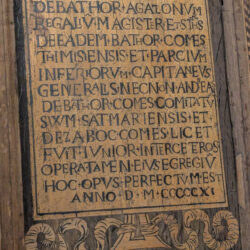 DEBATHOR AGAGONVM
REGALIVM MAGISTR ET STĒS
DE EADEM BATHOR COMES
THIMISIENSIS ET PARCIVM
INFERIORVM CAPITANEVS
GENERALIS NECNON ANDREA
DE BATHOR COMES COMITATV
SIVM SATMARIENSIS ET
DEZABOC COMES LICET
FVIT IVNIOR INTER CETROS
OPERA TAMEN EIVS EGREGIV
HOC OPVS PERFECTVM EST
ANNO D M CCCCCXI